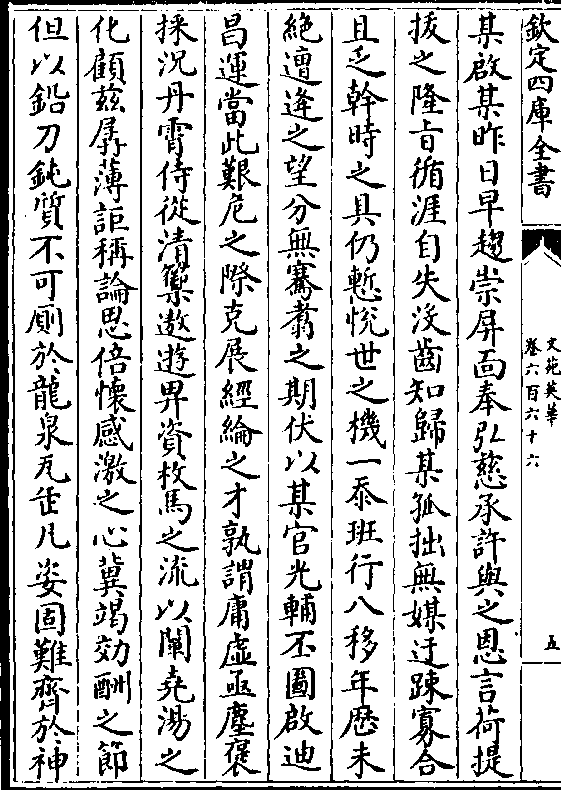 欽定四庫全書
文苑英華
卷六百六十六
五
某啟某昨日早趨崇屏面奉弘慈承許與之恩言荷提
拔之隆旨循涯自失沒齒知歸某孤拙無媒迂踈寡合
且乏幹時之具仍慙悅世之機一忝班行八移年歷未
絶邅迍之望分無騫翥之期伏以某官光輔丕圖啟迪
昌運當此艱危之際克展經綸之才孰謂庸虚亟塵褒
採况丹霄侍從清籞遨遊畀資枚馬之流以闡堯湯之
化顧兹孱薄詎稱論思倍懷感激之心冀竭効酬之節
但以鉛刀鈍質不可厠於龍泉瓦缶凡姿固難齊於神